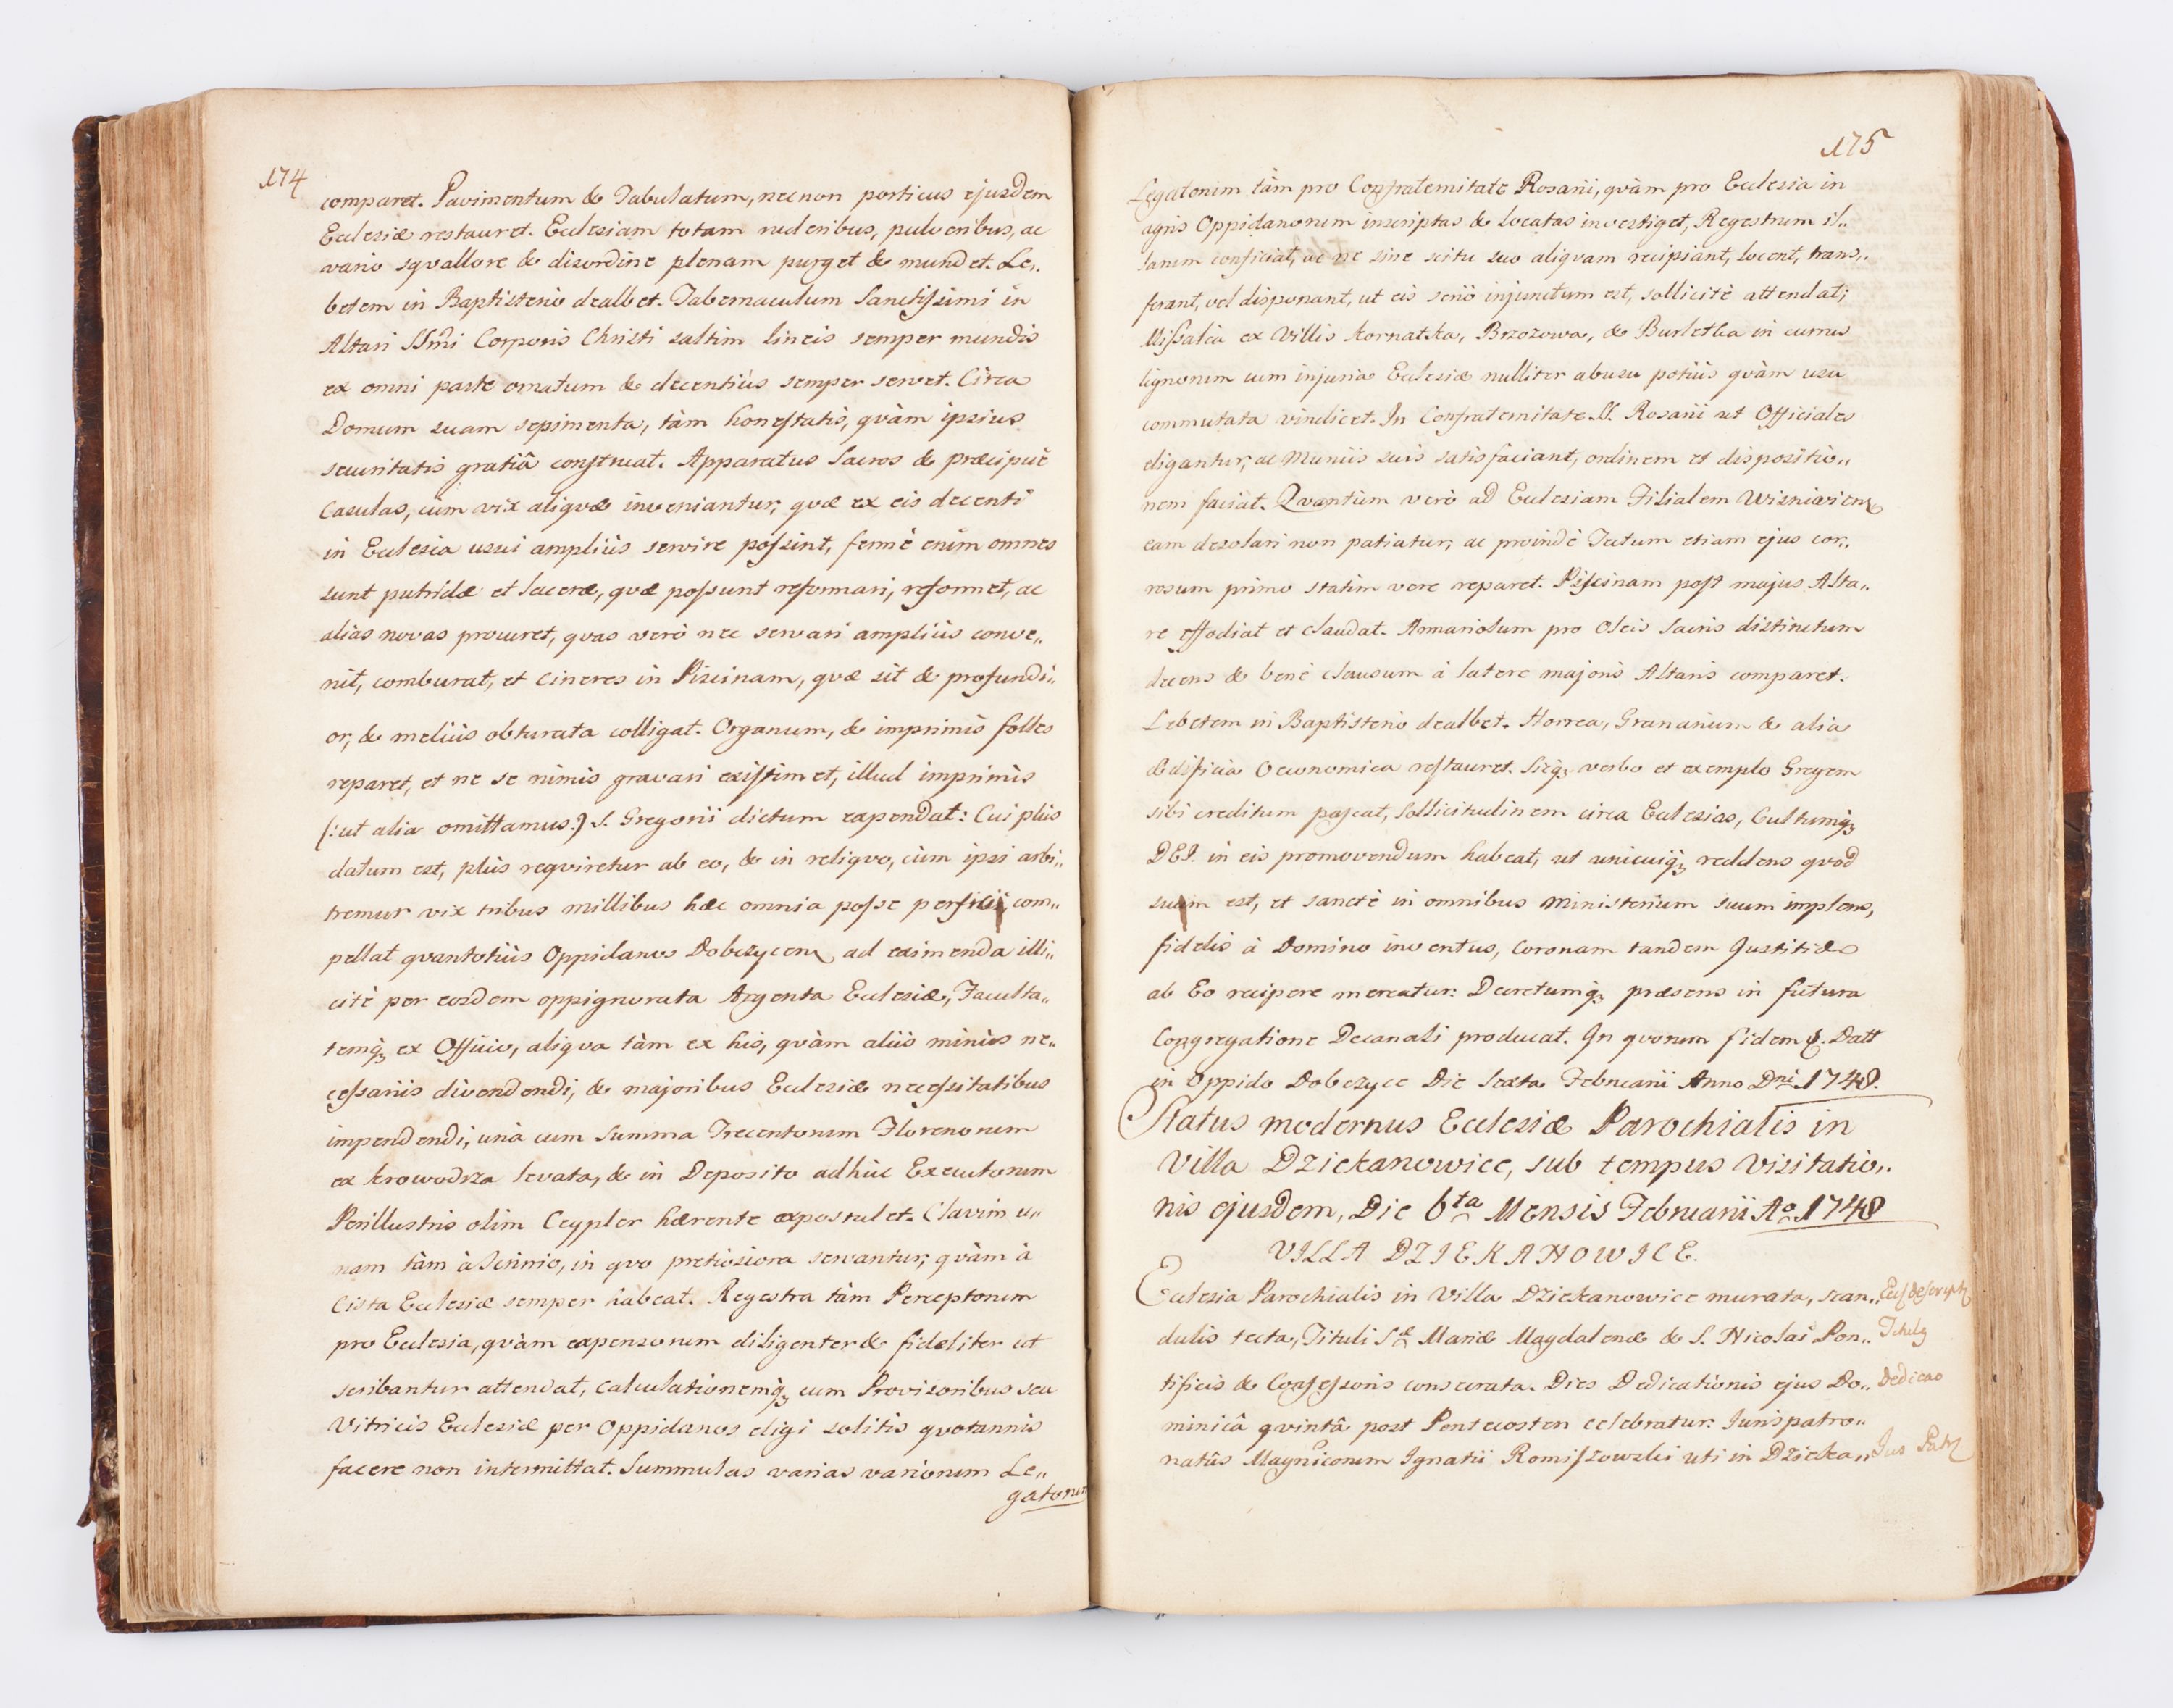 174
comparet. Pavimentum & Tabulatum, necnon porticus ejusdem
Ecclesiæ restauret. Ecclesiam totam ruderibus, pulveribus, ac
vario sqvallore & disordine plenam purget & mundet. Le„
betem in Baptisterio dealbet. Tabernaculum Sanctissimi in
Altari SSmi Corporis Christi saltim lineis semper mundis
ex omni parte ornatum & decentiùs semper servet. Circa
Domum suam sepimenta, tàm honestatis, qvàm ipsius
securitatis gratiâ construat. Apparatus Sacros & præcipuè
Casulas, cùm vix aliqvæ inveniantur, qvæ ex eis decenti
in Ecclesia usui ampliùs servire possint, fermè enim omnes
sunt putridæ et laceræ, qvæ possunt reformari, reformet, ac
alias novas procuret, qvas verò nec servari ampliùs conve„
nit, comburat, et cineres in Piscinam, qvæ sit & profundi„
or, & meliùs obturata colligat. Organum, & imprimis folles
reparet, et ne se nimis gravari existimet, illud imprimis
(: ut alia omittamus :) S. Gregorii dictum expendat: Cui plùs
datum est, plùs reqviretur ab eo, & in reliqvo, cùm ipsi arbi„
tremur vix tribus millibus hæc omnia posse perfici, com„
pellat qvantotiùs Oppidanos Dobczycen ad eximenda illi„
citè per eosdem oppignorata Argenta Ecclesiæ, Faculta„
temq3 ex Officio, aliqva tàm ex his, qvàm aliis minùs ne„
cessariis divendendi, & majoribus Ecclesiæ necessitatibus
impendendi, unà cum Summa Trecentorum Florenorum
ex Krowodrza levata, & in Deposito adhùc Executorum
Perillustris olim Ceypler hærente expostulet. Clavim u„
nam tàm à Scrinio, in qvo pretiosiora servantur, qvàm à
Cista Ecclesiæ semper habeat. Regestra tàm Perceptorum
pro Ecclesia, qvàm expensorum diligenter & fideliter ut
scribantur attendat, calculationemq3 cum Provisoribus seu
Vitricis Ecclesiæ per Oppidanos eligi solitis qvotannis
facere non intermittat. Summulas varias variorum Le„
gatorum
175
Legatorum tàm pro Confraternitate Rosarii, qvàm pro Ecclesia in
agris Oppidanorum inscriptas & locatas investiget, Regestrum il„
larum conficiat, ac ne sine scitu suo aliqvam recipiant, locent, trans„
ferant, vel disponant, ut eis seriò injunctum est, sollicitè attendat;
Missalia ex Villis Kornatka, Brzozowa, & Burletka in currus
lignorum cum injuria Ecclesiæ nulliter abusu potiùs qvàm usu
commutata vindicet. In Confraternitate SS. Rosarii ut Officiales
eligantur, ac Muniis suis satisfaciant, ordinem et dispositio„
nem faciat. Qvantùm verò ad Ecclesiam Filialem Wisnioviens
eam desolari non patiatur, ac proindè Tectum etiam ejus cor„
rosum primo statim vere reparet. Piscinam post majus Alta„
re effodiat et claudat. Armariolum pro Oleis Sacris distinctum
decens & benè clausum à latere majoris Altaris comparet.
Lebetem in Baptisterio dealbet. Horrea, Granarium & alia
ædificia Oeconomica restauret. Sicq3 verbo et exemplo Gregem
sibi creditum pascat, Sollicitudinem circa Ecclesias, Cultumq3
DEI in eis promovendum habeat, ut unicuiq3 reddens qvod
suum est, et sanctè in omnibus Ministerium suum implens,
fidelis à Domino inventus, Coronam tandem Justitiæ
ab Eo recipere mereatur: Decretumq3 præsens in futura
Congregatione Decanali producat. In qvorum fidem &. Datt
in Oppido Dobczyce Die Sexta Februarii Anno Dni 1748.
Status modernus Ecclesiæ Parochialis in
Villa Dziekanowice, sub tempus Visitatio„
nis ejusdem, Die 6ta Mensis Februarii Ao 1748
VILLA DZIEKANOWICE.
Ecclesia Parochialis in Villa Dziekanowice murata, scan„ Eccl descript
dulis tecta, Tituli Stæ Mariæ Magdalenæ & S. Nicolai Pon„ Titulq
tificis & Confessoris consecrata. Dies Dedicationis ejus Do„ Dedicao
minicâ qvintâ post Pentecosten celebratur: Iurispatro„
natûs Magnificorum Ignatii Romiszowski uti in Dzieka„ Jus Patr